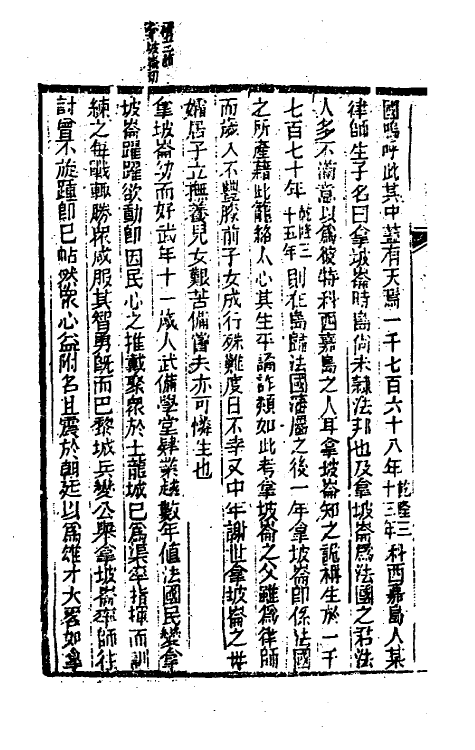 國嗚呼此其中蓋有天焉一千七百六十八年乾隆三十三年科西嘉島人某
律師生子名曰拿坡崙時島尚未隸法邦也及拿坡崙爲法國之君法
人多不滿意以爲彼特科西嘉島之人耳拿坡崙知之詭稱生於一千
七百七十年乾隆三十五年則在島歸法國藩屬之後一年拿坡崙卽係法國
之所產藉此籠絡人心其生平譎詐類如此考拿坡崙之父雖爲律師
而歲入不豐膝前子女成行殊難度日不幸又中年謝世拿坡崙之母
孀居孑立撫養兒女艱苦備嘗夫亦可憐生也
拿坡崙幼而好武年十一歲入武備學堂肄業越數年值法國民變拿
坡崙躍躍欲動卽因民心之推戴聚衆於土龍城已爲渠率指揮而訓
練之每戰輒勝衆咸服其智勇旣而巴黎城兵變公舉拿坡崙率師往
討曾不旋踵卽已帖然衆心益附名且震於朝廷以爲雄才大畧如拿